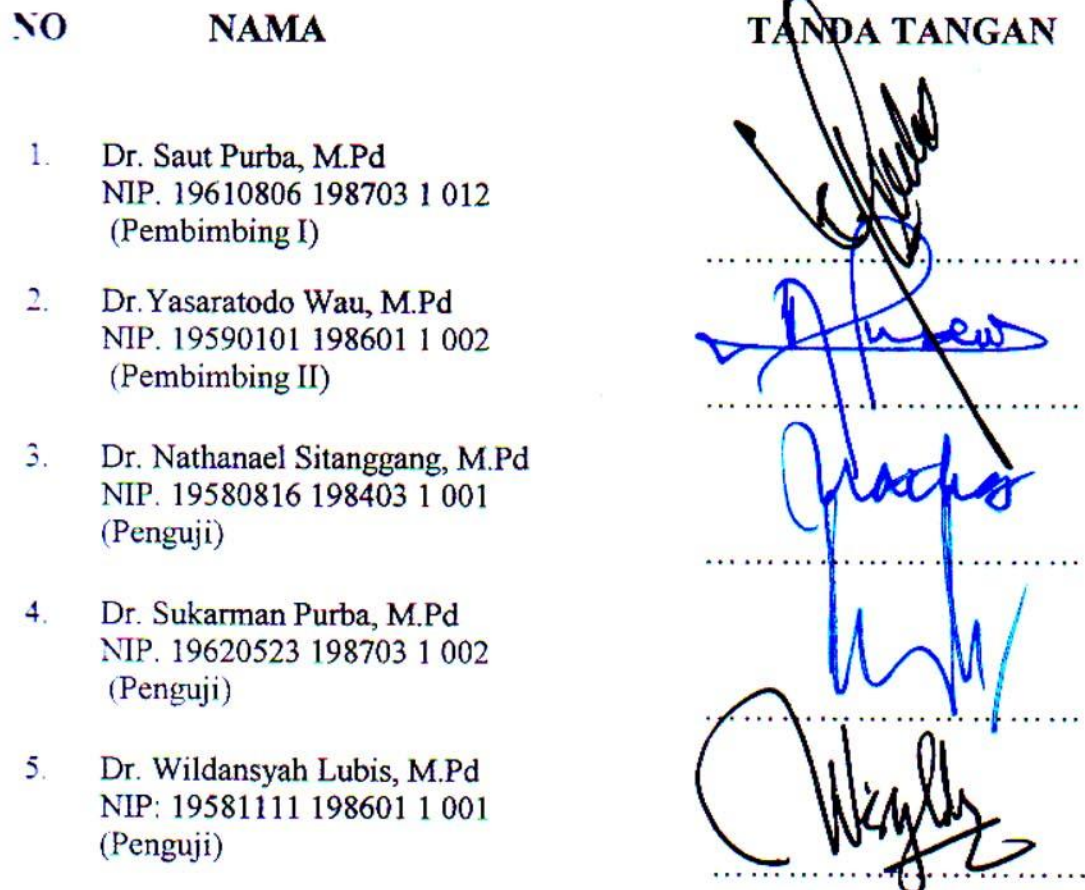 NO NAMA TANDA TANGAN
1. Dr. Saut Purba, M.Pd
NIP. 19610806 198703 1 012
(Pembimbing I)
2. Dr.Yasaratodo Wau, M.Pd
NIP. 19590101 198601 1 002
(Pembimbing II)
3. Dr. Nathanael Sitanggang, M.Pd
NIP. 19580816 198403 1 001
(Penguji)
4. Dr. Sukarman Purba, M.Pd
NIP. 19620523 198703 1 002
(Penguji)
5. Dr. Wildansyah Lubis, M.Pd
NIP: 19581111 198601 1 001
(Penguji)